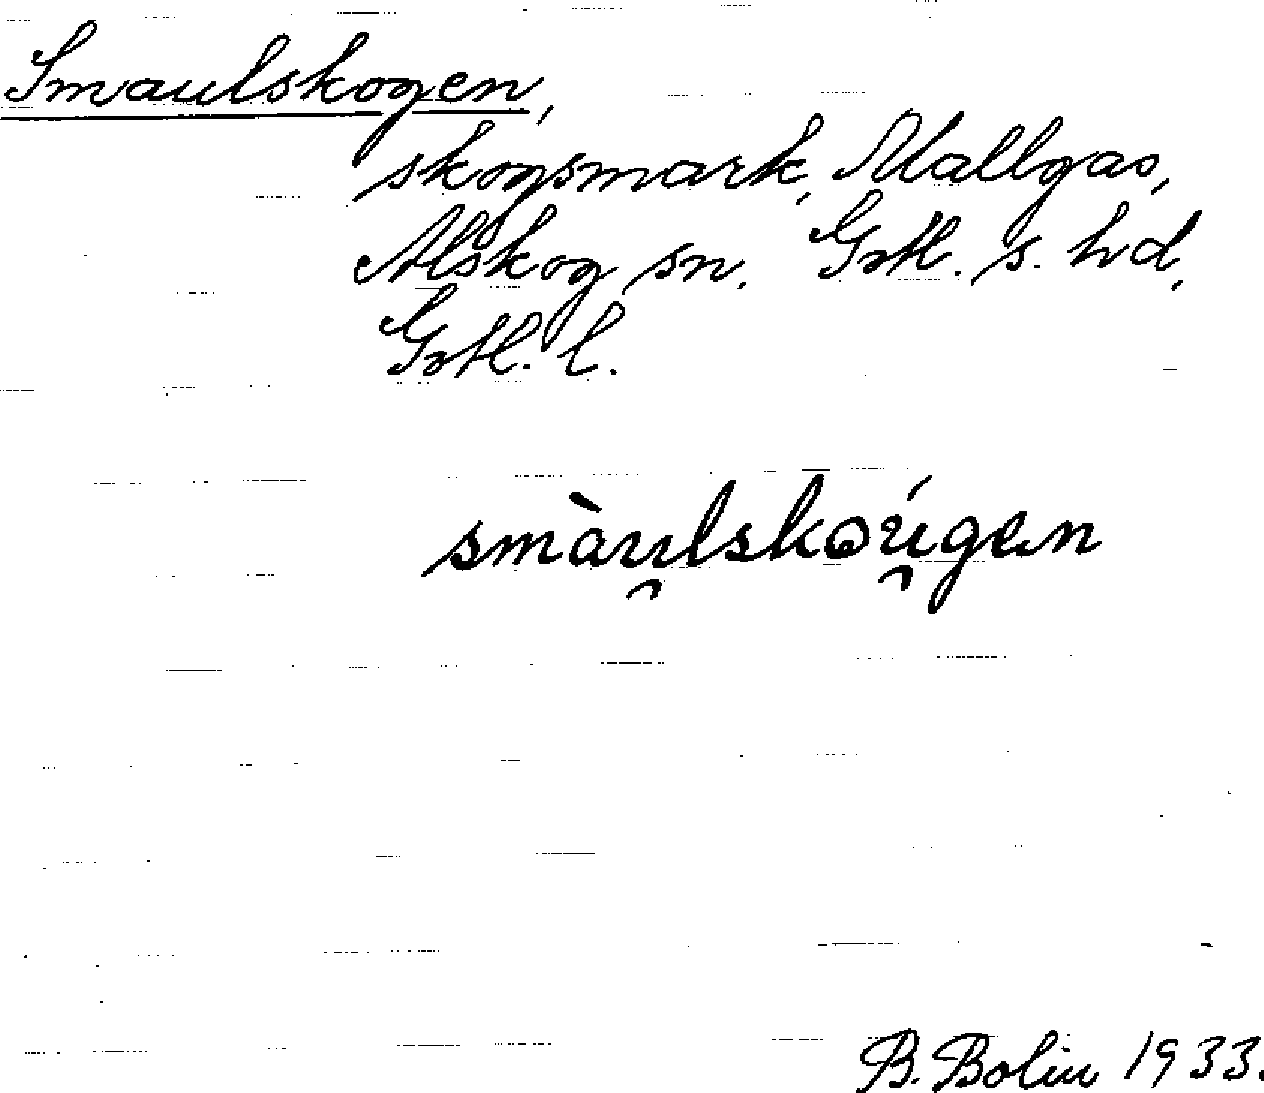 Smaulskogen,
skogsmark, Mallgas,
Alskog sn. Gotl. s. hd,
Gotl. l.
smàu̯lskoú̯gen
B. Bolin 1933.